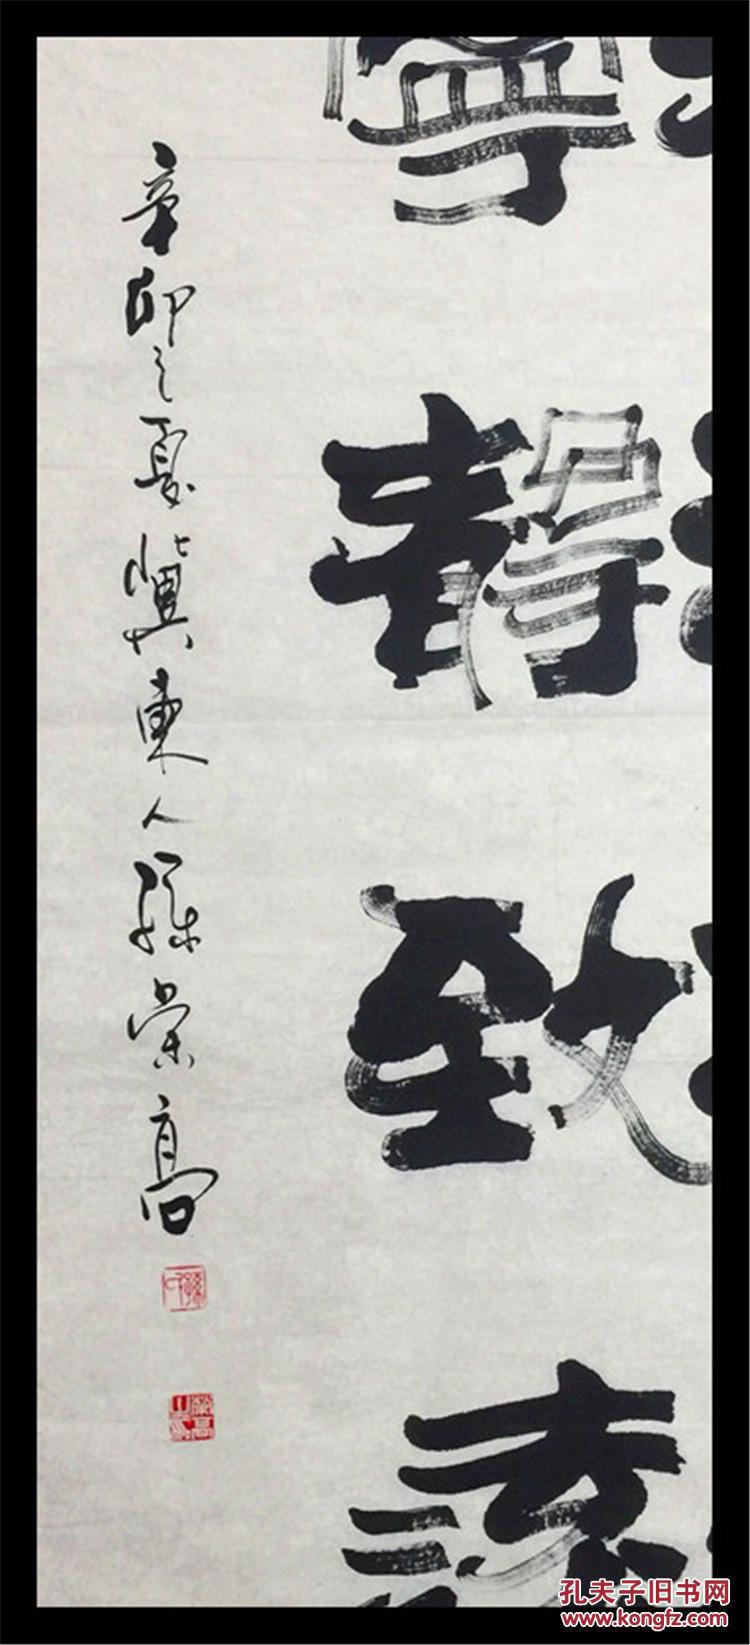 寧靜致遠
辛卯之夏冀東人孫荣高
孔夫子旧书网
www.kongfz.com